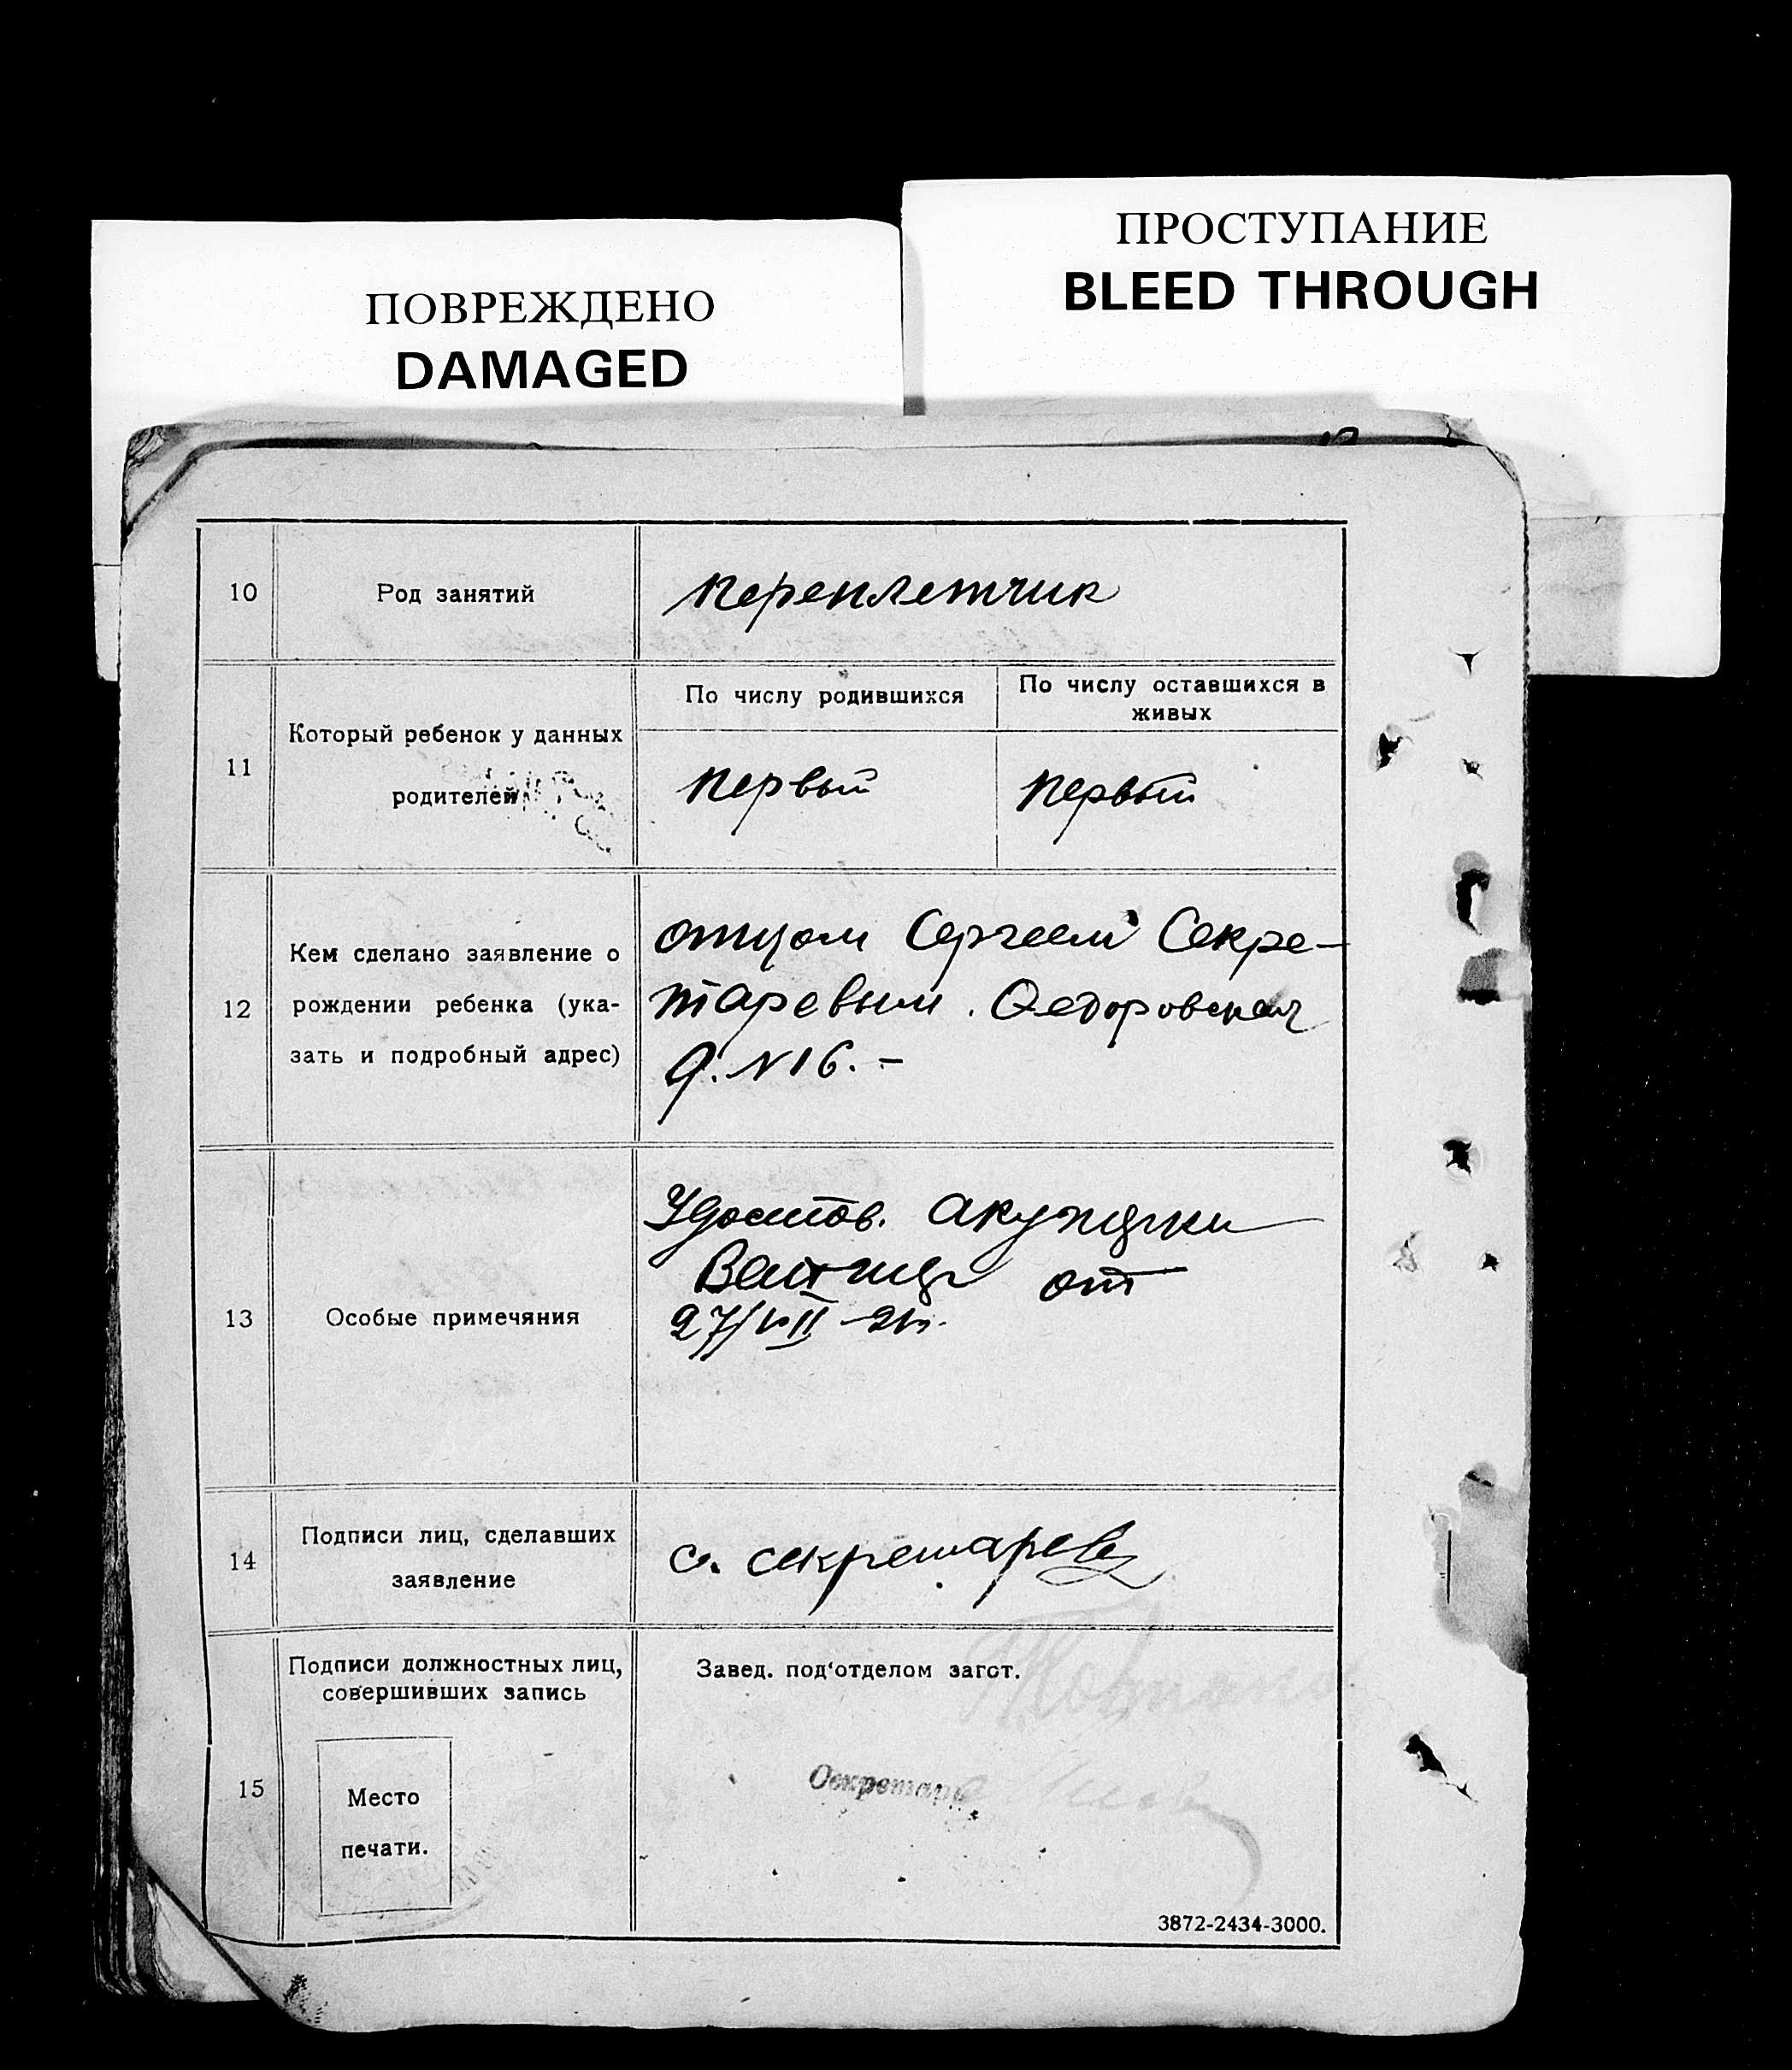 ПОВРЕЖДЕНО
DAMAGED
ПРОСТУПАНИЕ
BLEED THROUGH
10 Род занятий переплетчик
11 Который ребенок у данных
родителей
По числу родившихся
По числу оставшихся в
живых
первый первый
12 Кем сделано заявление о
рождении ребенка (ука-
зать и подробный адрес)
отцом Сергеем Секре-
таревым. Федоровская
д. N 16. –
13 Особые примечяния
Удостов. акушерки
от
27/VII
14 Подписи лиц, сделавших
заявление
С. Секретарев
15 Подписи должностных лиц,
совершивших запись
Место
печати.
Завед. под'отделом загст.
Секретарь
3872-2434-3000.